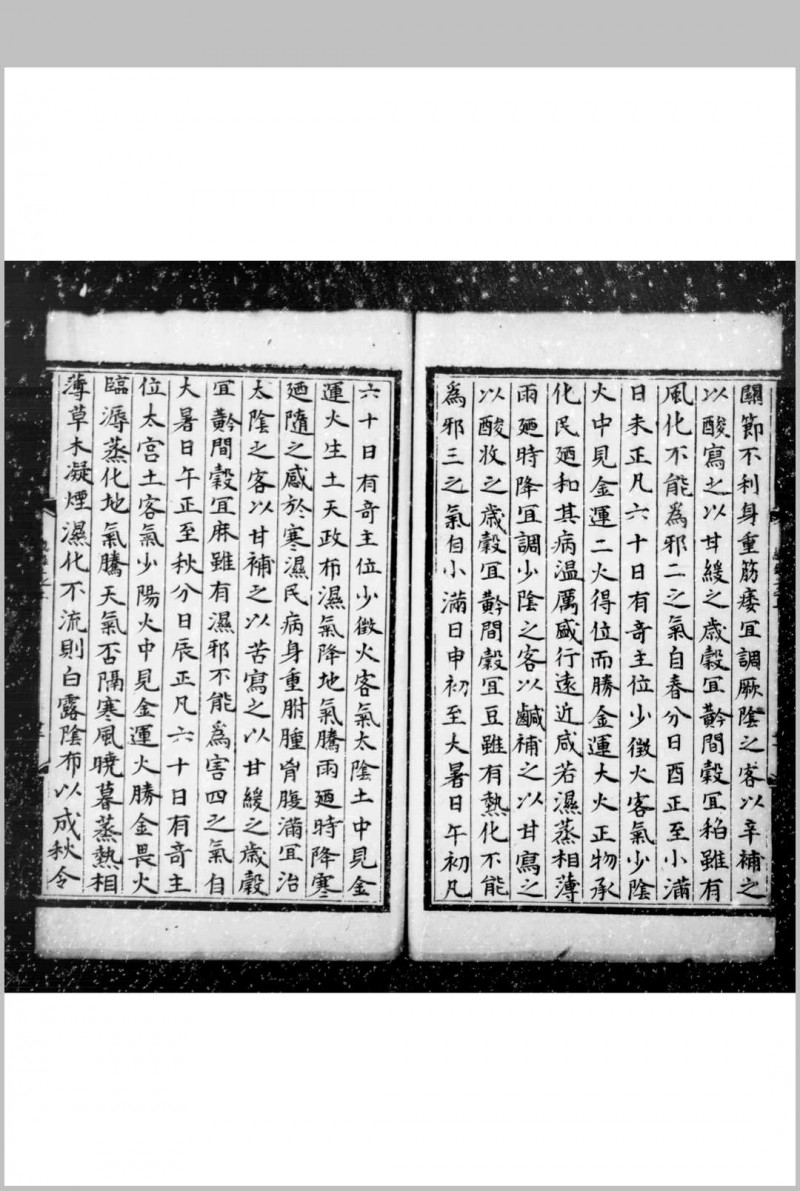 關節不利身重筋痿宜調厥陰之客以辛補之
以酸寫之以甘緩之歲穀宜黅間穀宜稻雖有
風化不能為邪二之氣自春分日酉正至小滿
日未正凡六十日有奇主位少徵火客氣少陰
火中見金運二火得位而勝金運大火正物承
化民廼和其病温厲盛行遠近咸若濕蒸相薄
雨廼時降宜調少陰之客以鹹補之以甘寫之
以酸收之歲穀宜黅間穀宜豆雖有熱化不能
為邪三之氣自小滿日申初至大暑日午初凡
六十日有奇主位少徵火客氣太陰土中見金
運火生土天政布濕氣降地氣騰雨廼時降寒
廼隨之感於寒濕民病身重胕腫胷腹滿宜治
太陰之客以甘補之以苦寫之以甘緩之歲穀
宜黅間穀宜麻雖有濕邪不能為害四之氣自
大暑日午正至秋分日辰正凡六十日有奇主
位太宮土客氣少陽火中見金運火勝金畏火
臨溽蒸化地氣騰天氣否隔寒風曉暮蒸熱相
薄草木凝煙濕化不流則白露陰布以成秋令